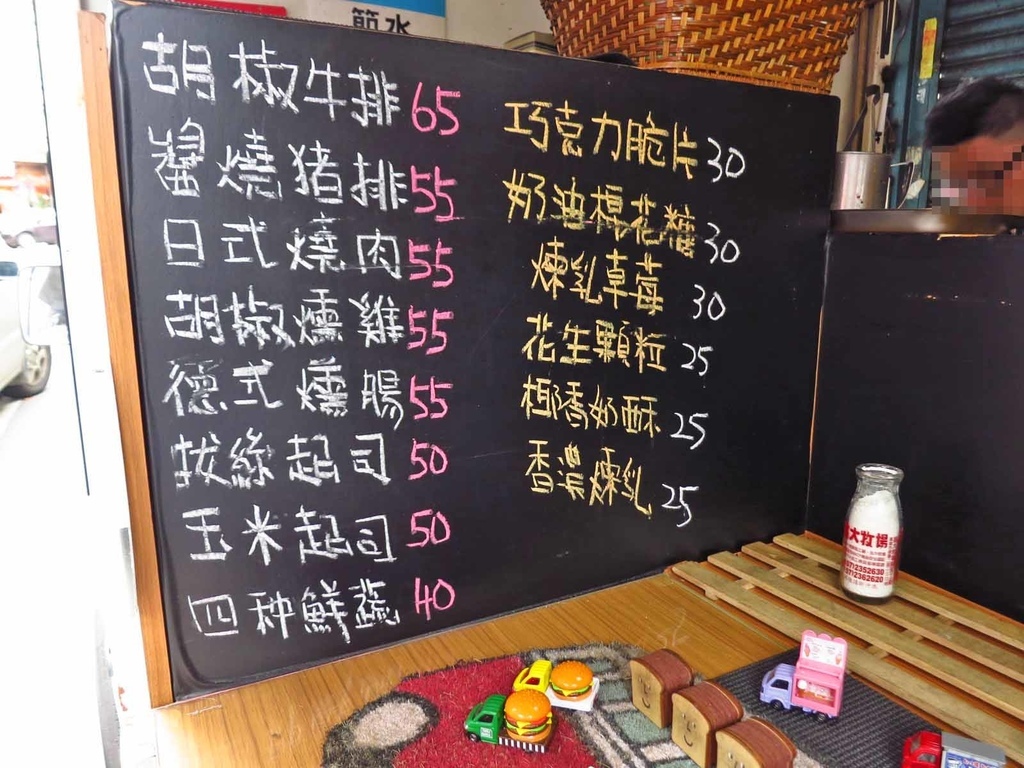 節水
胡椒牛排 65
醬燒猪排 55
日式燒肉 55
胡椒燻雞 55
德式燻腸 55
拔絲起司 50
玉米起司 50
四种鮮蔬 40
巧克力脆片 30
奶油棉花糖 30
煉乳草莓 30
花生顆粒 25
椰香奶酥 25
香濃煉乳 25
大牧場
0712352630
0712362620